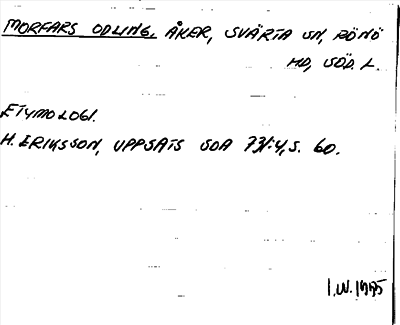 MORFARS ODLING, ÅKER, SVÄRTA SN, RÖNÖ
HD, SÖD. L.
ETYMOLOGI.
H. ERIKSSON, UPPSATS SOA 731:4, S. 60.
I.W. 1975